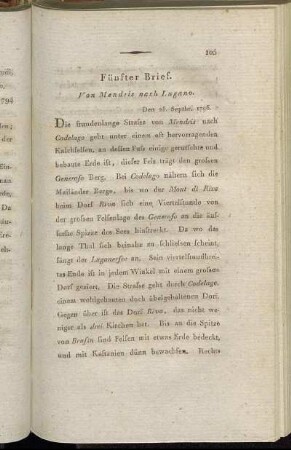 105
Fünfter Brief.
Von Mendris nach Lugano.
Den 28. Septbr. 1795.
Die stundenlange Strasse von Mendris nach
Codelago geht unter einem oft hervorragenden
Kalchfelsen, an dessen Fuss einige gerutschte und
bebaute Erde ist, dieser Fels trägt den grossen
Generoso Berg. Bei Codelago nähern sich die
Mailänder Berge, bis wo der Mont di Riva
beim Dorf Riva sich eine Viertelstunde von
der grossen Felsenlage des Generoso an die äus-
serste Spitze des Sees hinstreckt. Da wo das
lange Thal sich beinahe zu schliessen scheint,
fängt der Luganersee an; Sein viertelstundbrei-
tes Ende ist in jedem Winkel mit einem grossen
Dorf geziert. Die Strasse geht durch Codelago,
einem wohlgebauten doch übelgehaltenen Dorf.
Gegen über ist das Dorf Riva, das nicht we-
niger als drei Kirchen hat. Bis an die Spitze
von Brusin sind Felsen mit etwas Erde bedenkt,
und mit Kastanien dünn bewachsen. Rechts